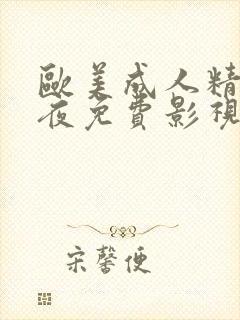 歐美成人精
夜免費影視
宋馨便